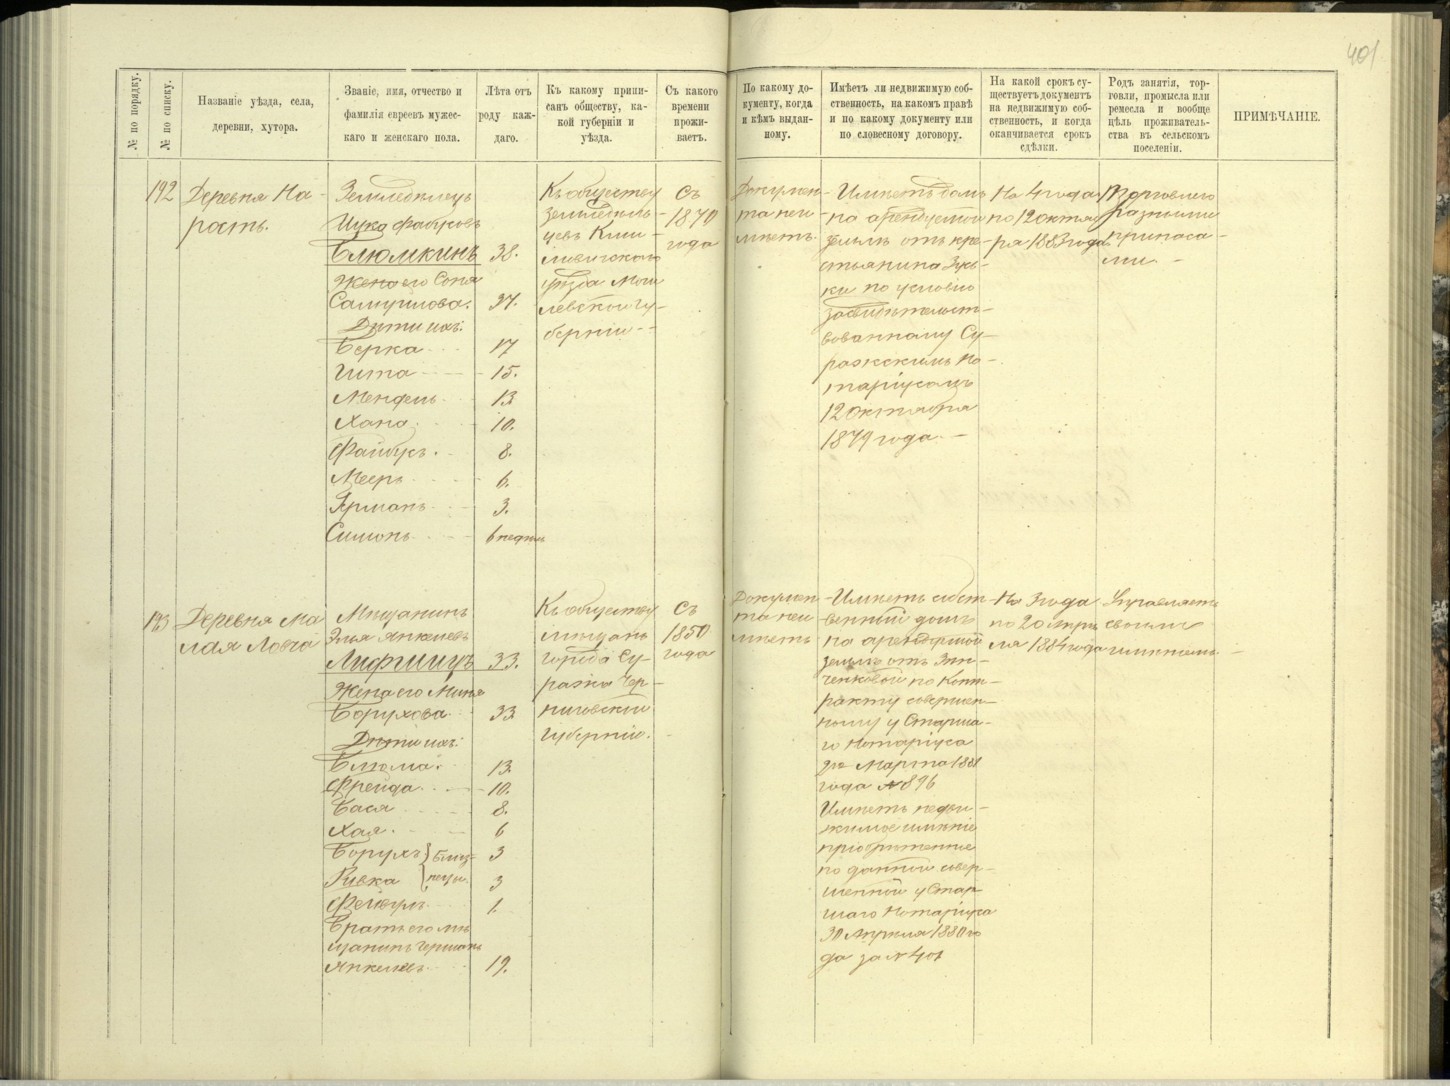 401
№ по порядку.
№ по списку.
Названіе уѣзда, села,
деревни, хутора.
Званіе, имя, отчество и
фамилія евреевъ мужес-
каго и женскаго пола.
Лѣта отъ
роду каж-
даго.
Къ какому припи-
санъ обществу, ка-
кой губерніи и
уѣзда.
Съ какого
времени
прожи-
ваетъ.
По какому до-
кументу, когда
и кѣмъ выдан-
ному.
Имѣетъ ли недвижимую соб-
ственность, на какомъ правѣ
и по какому документу или
по словесному договору.
На какой срокъ су-
ществуетъ документъ
на недвижимую соб-
ственность, и когда
оканчивается срокъ
сдѣлки.
Родъ занятія, тор-
говли, промысла или
ремесла и вообще
цѣль проживатель-
ства въ сельскомъ
поселеніи.
ПРИМѢЧАНІЕ.
192
Деревня На-
рость.
Земледѣлецъ
Ицка Файбусовъ
Блюмкинъ 38.
Жена его Соня
Самуилова. 37.
Дѣти ихъ:
Берка 17
Гита 15.
Мендель 13
Хана 10.
Файбусъ. 8.
Мееръ 6.
Германъ 3.
Симонъ 6 недѣль
Къ обществу
земледѣль-
цевъ Кли-
мовичскаго
уѣзда Моги
левской гу-
берніи
Съ
1870
года
Докумен-
та неи-
мѣетъ.
Имѣетъ домъ
на арендуемой
землѣ отъ кре-
стьянина
ки по условію
засвидѣтельст-
вованному Су-
ражскимъ Но-
таріусомъ
12 Октября
1879 года.
На 4 года
по 12 Октя
ря 1883 года
Торговлею
разными
припаса-
ми
193
Деревня Ма
лая Ловча
Мещанинъ
Элья Янкелевъ
Лифшицъ 33.
Жена его Миня
Борухова 33
Дѣти ихъ:
Блюма. 13.
Фрейда 10.
Бася 8.
Хая. 6
Борухъ } Близ- 3
Ривка } нецы. 3
Фейгулъ 1.
Братъ его мѣ
щанинъ Германъ
Янкелевъ 19.
Къ обществу
мѣщанъ
города Су-
ража Чер-
ниговской
губерніи.
Съ
1850
года
Докумен
та неи
мѣетъ
Имѣетъ собст
венный домъ
на арендуемой
землѣ отъ Зин-
ченковой по Конт-
ракту совершен-
ному у Старша-
го Нотаріуса
Марта 1881
года № 896
Имѣетъ недви-
жимое имѣніе
пріобрѣтенное
по данной совер-
шенной у Стар-
шаго Нотаріуса
30 Апрѣля 1880 го
да за № 401
На 3 года
по 20
ля 1884 года
Управляетъ
своимъ
имѣніемъ